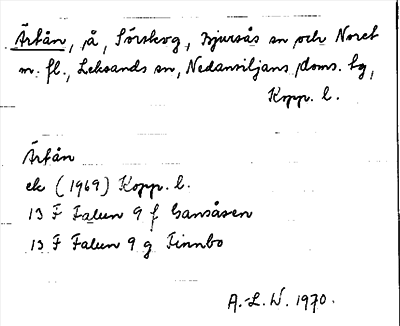 Ärtån, å, Sörskog, Bjursås sn och Noret
m. fl., Leksands sn, Nedansiljans doms. tg,
Kopp. l.
Ärtån
ek (1969) Kopp. l.
13 F Falun 9 f Gansåsen
13 F Falun 9 g Finnbo
A.-L. W. 1970.